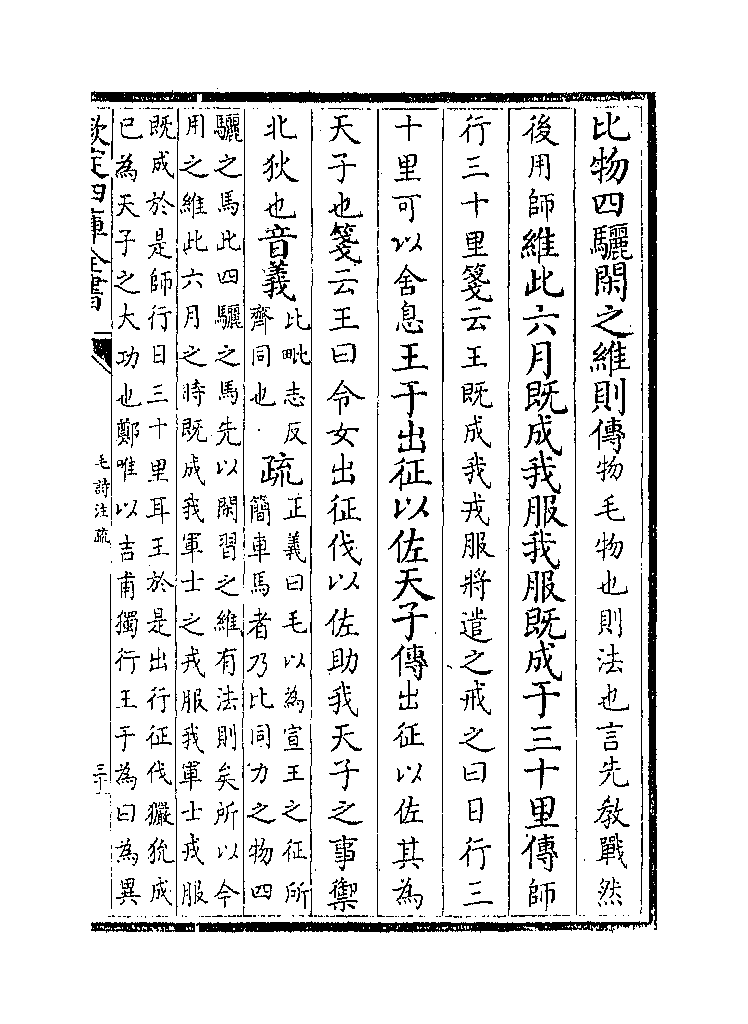 比物四驪閑之維則傳物毛物也則法也言先教戰然
後用師維此六月既成我服我服既成于三十里傳師
行三十里箋云王既成我戎服將遣之戒之曰日行三
十里可以舍息王于出征以佐天子傳出征以佐其為
天子也箋云王曰令女出征伐以佐助我天子之事禦
北狄也音義比毗志反
齊同也疏正義曰毛以為宣王之征所
簡車馬者乃比同力之物四
驪之馬此四驪之馬先以閑習之維有法則矣所以今
用之維此六月之時既成我軍士之戎服我軍士戎服
既成於是師行日三十里耳王於是出行征伐玁狁成
已為天子之大功也鄭唯以吉甫獨行王于為曰為異
欽定四庫全書
毛詩注疏
三十